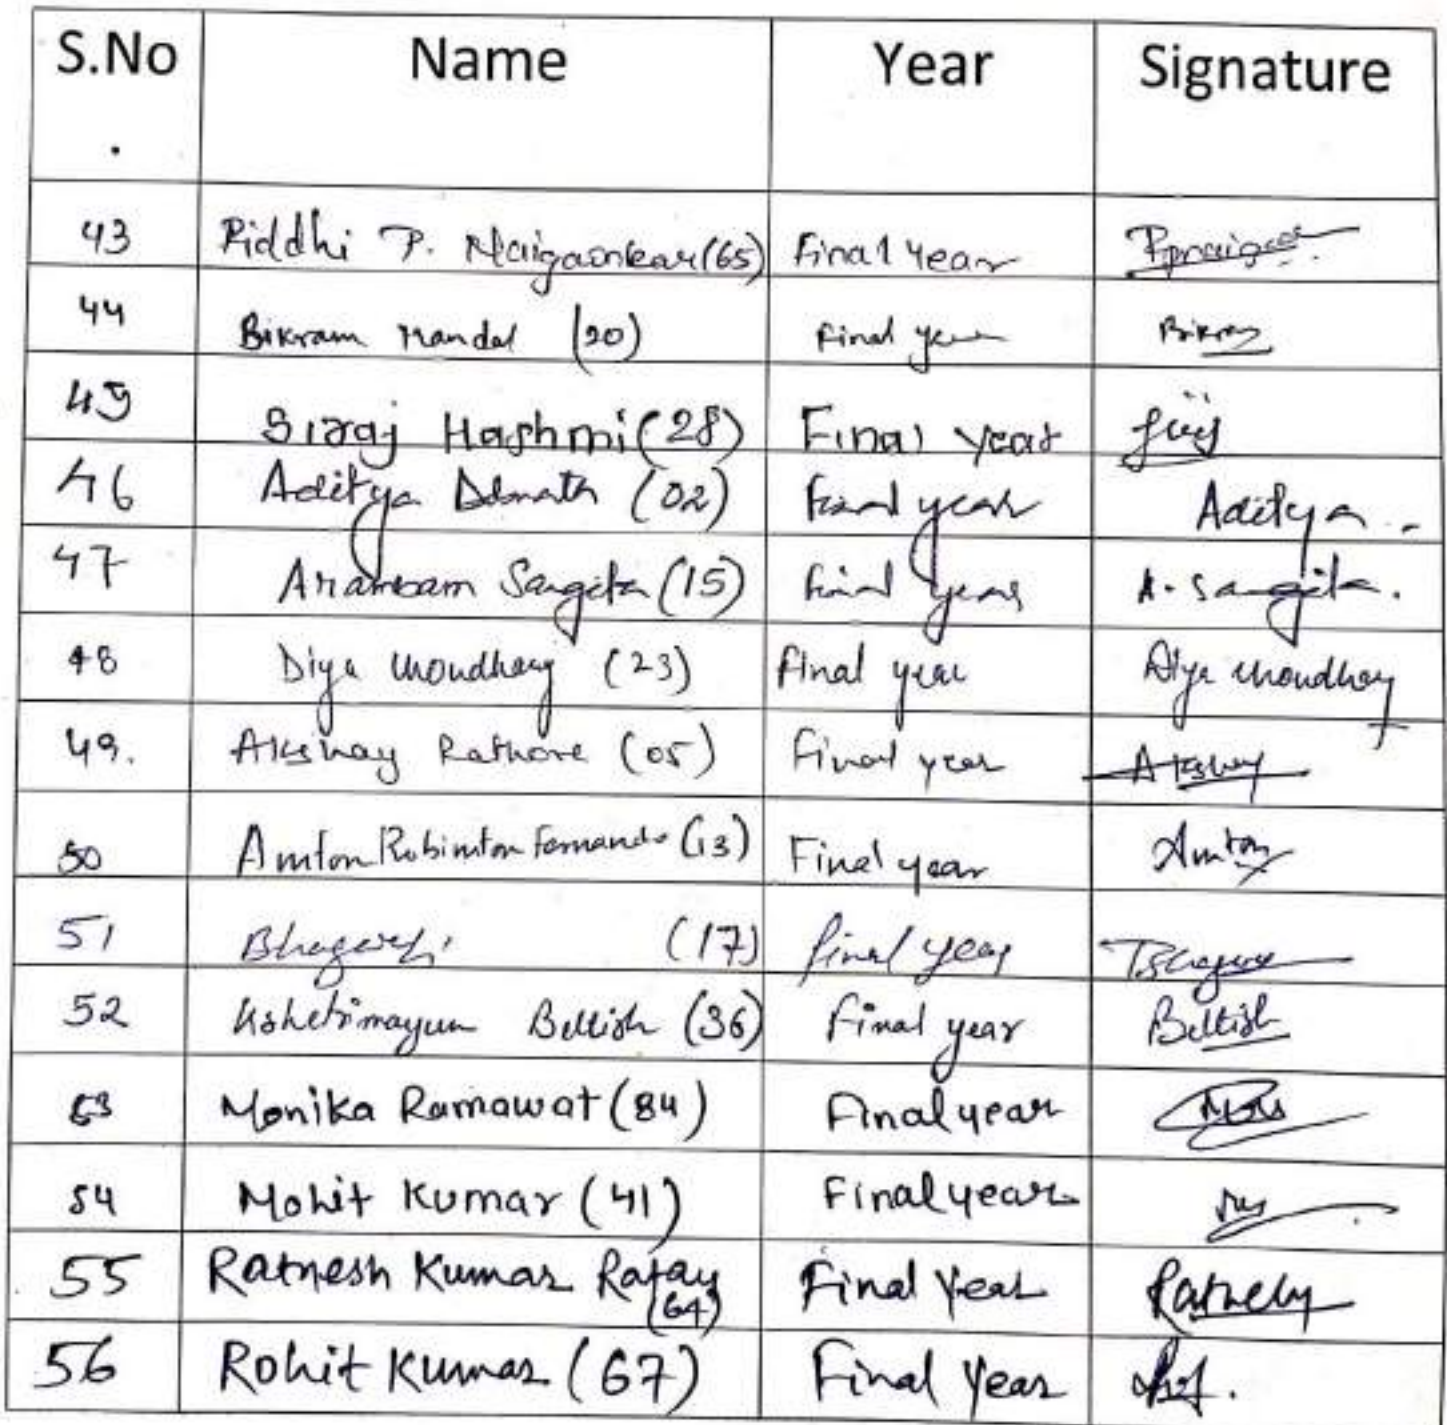 S.No Name Year Signature
.
43 Riddhi P. Naigaonkar (65) Final year
44 Bikram Mandal (20) Final year Bikram
45 Siraj Hashmi (28) Final year
46 Aditya Debnath (02) Final year Aditya
47 Arambam Sangita (15) Final year A. Sangita.
48 Diya Choudhary (23) Final year Diya Choudhary
49. Akshay Rathore (05) Final year Akshay
50 Anton Robinton Fernando (13) Final year Anton
51 (17) Final year
52 Kshetrimayum Beltish (36) Final year Beltish
53 Monika Ramawat (84) Final year
54 Mohit Kumar (41) Final year
55 Ratnesh Kumar Rajay Final Year
(64)
56 Rohit Kumar (67) Final Year